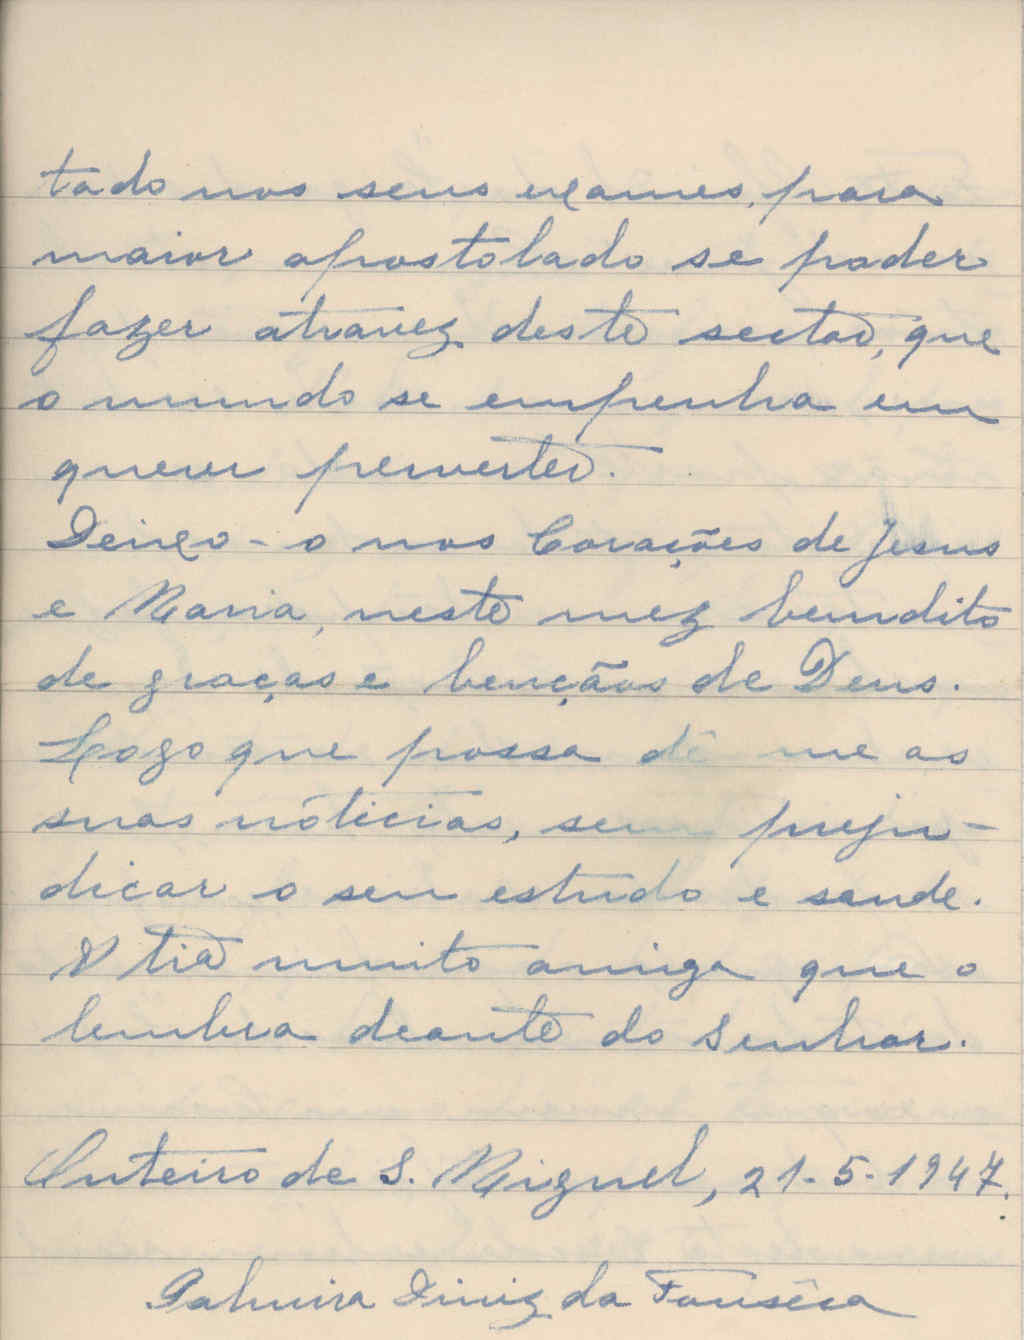 tado nos seus exames, para
maior apostolado se poder
fazer átravez deste sector, que
o mundo se empenha em
querer perverter.
Deixo-o nos Corações de Jesus
e Maria, neste mez bendito
de graças e bençãos de Deus.
Logo que possa dê me as
suas nóticias, sem preju-
dicar o seu estudo e saude.
A tia muito amiga que o
lembra deante do Senhor.
Outeiro de S. Miguel, 21-5-1947.
Palmira Diniz da Fonsêca